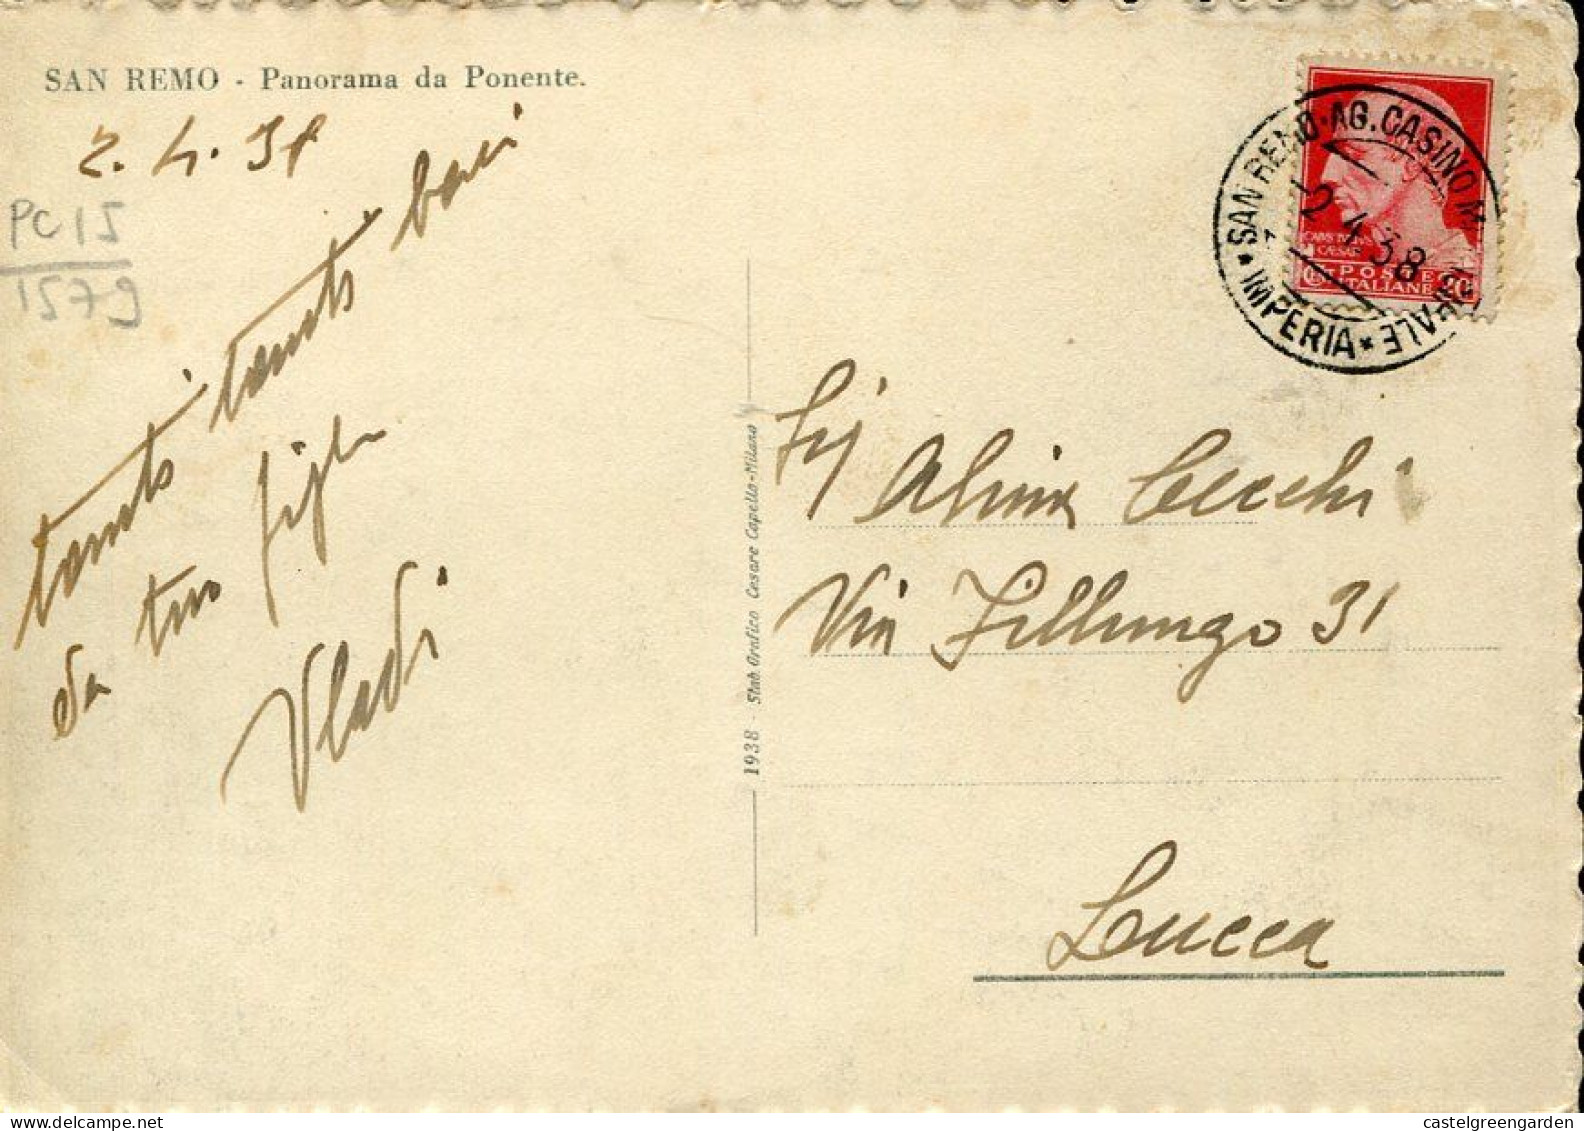 SAN REMO - Panorama da Ponente.
2.4.38
PC15
1579
tanti tanti baci
da tuo figlio
Vladi
1938 - Stab. Grafico Cesare Capello-Milano
SAN REMO·AG.CASINO M
IPALE
*IMPERIA*
2.4.38
POSTE
ITALIANE
20
Alina Cecchi
Via Fillungo 31
Lucca
castelgreengarden